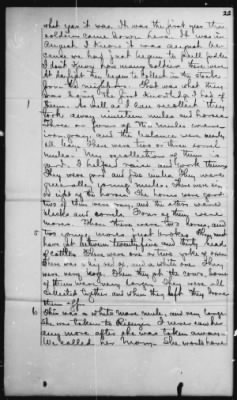 22
what year it was. It was the first year the
soldiers came down here. It was in
August I know it was August be-
cause we had just begun to pull fodder
I don't know how many soldiers there were.
At daylight they began to collect in the stock
from the neighbors. That was what they
was doing the first knowledge I had of
them. As well as I can recollect they
took away nineteen mules and horses
Three or four of the mules were
iron gray and the balance were nearly
all bay. There were two or three sorrel
mules. My recollection of them is
good. I helped raise and work them.
They were good and fine mules. They were
generally young mules. There were six
or eight of the horses. The horses were good
two of them were bay, and the others were
blacks and sorrels. Four of them were
mares.
5 young mares great workers. They must
have got between twenty five and thirty head
of cattle. There were one or two yoke of oxen
There was a big red ox, and a white one. They
were very large. Then they got the cows, some
of them were very large. They were all
collected together and when they left they drove
them off.
6 This was a white mare mule, and very large
She was taken to Rienzi. I never saw her
any more after she was taken away.
We called her Mary. She would have